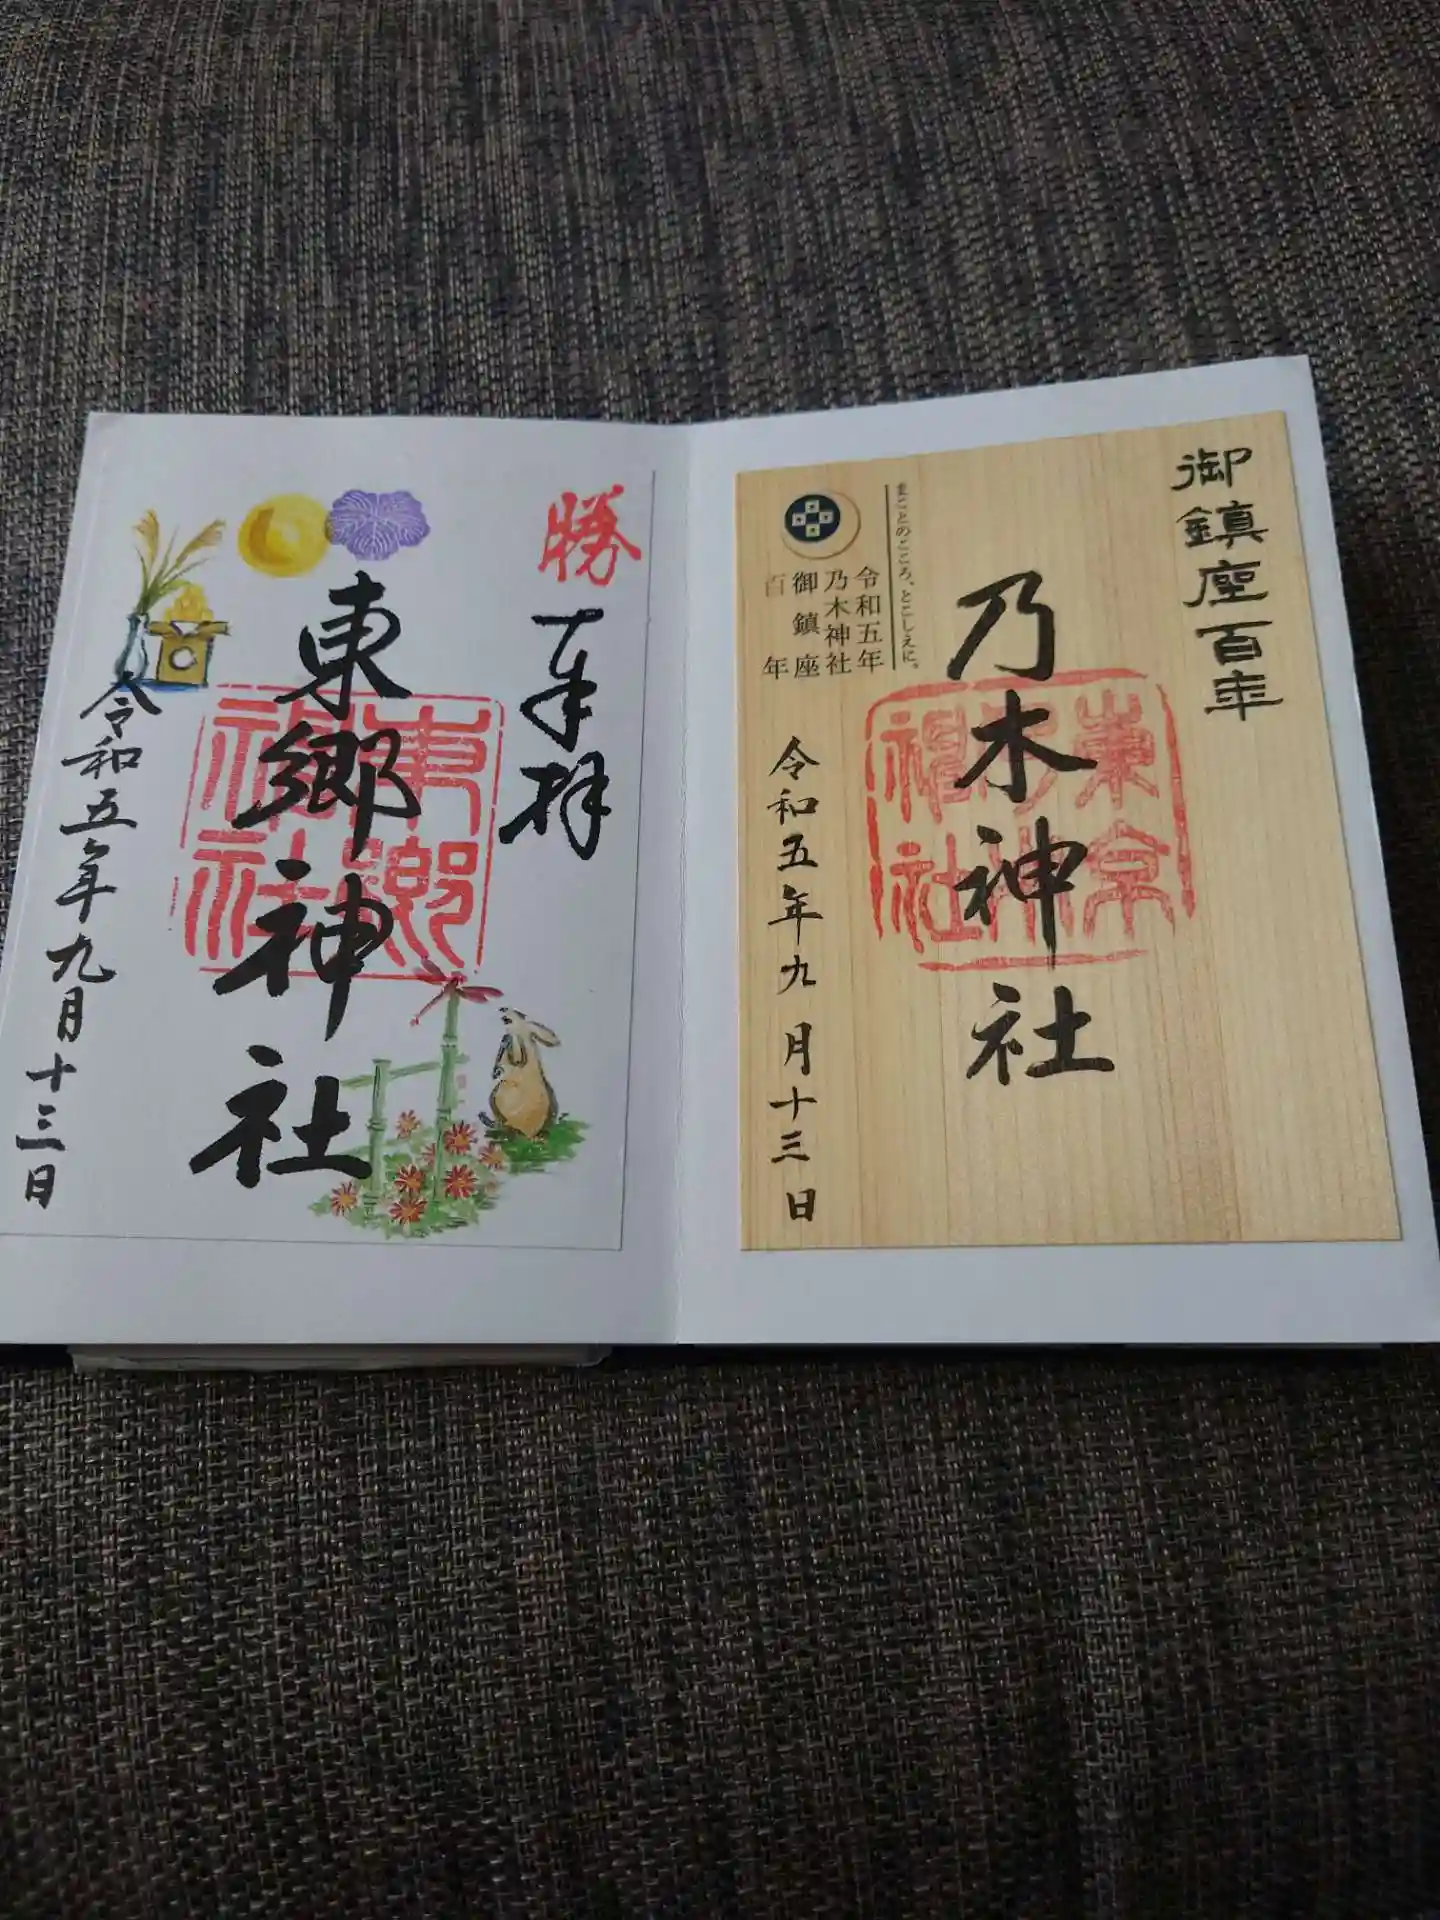 御鎮座百年
乃木神社
令和五年九月十三日
まことのこころ、とこしえに。
令和五年
乃木神社
御鎮座
百年
東京
乃木
神社
勝
奉拝
東郷神社
令和五年九月十三日
東郷
神社